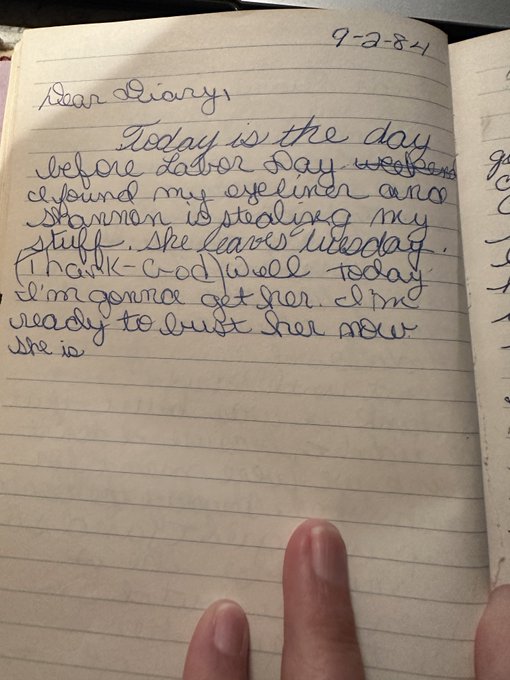 9-2-84
Dear Diary,
Today is the day
before Labor Day weekend
I found my eyeliner and
Shannon is stealing my
stuff. She leaves Tuesday.
(Thank-God) Well Today
I'm gonna get her. I'm
ready to bust her now
She is